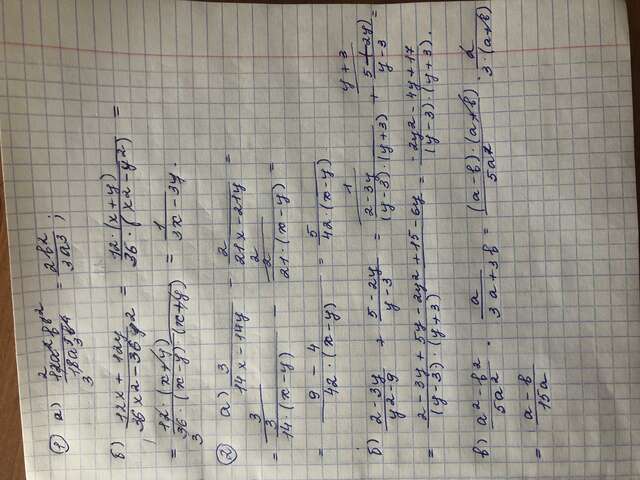 ① а) 12a²b²/18a³b⁴ = 2b²/3a³;
б) 12x + 12y/36x2 - 36y2 = 12(x+y)/36·(x2 y2) =
= 12·(x+y)/36·(x-y)·(x+y) = 1/3x - 3y.
② а) 3/14x - 14y - 2/21x - 21y =
= 3/14·(x-y) - 2/21·(x-y) =
= 9 - 4/42·(x-y) = 5/42·(x-y)
б) 2 - 3y/y2 - 9 + 5 - 2y/y - 3 = 2 - 3y/(y-3)·(y+3) + 5 - 2y)/y - 3 =
= 2 - 3y + 5y - 2y2 + 15 - 6y/(y-3)·(y+3) = -2y2 - 4y + 17/(y-3)·(y+3).
в) a² - b²/5a² · a/3a + 3b = (a-b)·(a+b)/5a2 · a/3·(a+b)
= a - b/15a